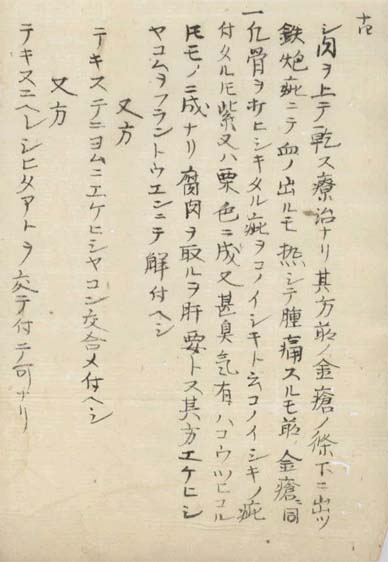 シ肉ヲ上テ乾ス療治ナリ其方前ノ金瘡ノ條下ニ出ツ
鉄炮疵ニテ血ノ出ルモ熱シテ腫痛スルモ前ノ金瘡ニ同
一亿骨ヲ打ヒシキタル疵ヲコノイシキト云コノイシキノ疵
付タル𪜈紫又ハ栗色ニ成又甚臭気有ハコウツヒコル
𪜈モノニ成ナリ腐肉ヲ取ルヲ肝要トス其方エケヒシ
ヤコムヲフラントウエンニテ解付ヘシ
又方
テキステニヨムニエケヒシヤコン交合メ付ヘシ
又方
テキスニヘレシヒタアトヲ交テ付ニノ可ナリ